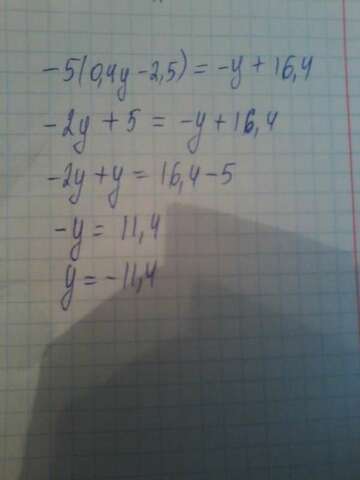 -5(0,4y-2,5)=-y+16,4
-2y+5=-y+16,4
-2y+y=16,4-5
-y=11,4
y=-11,4